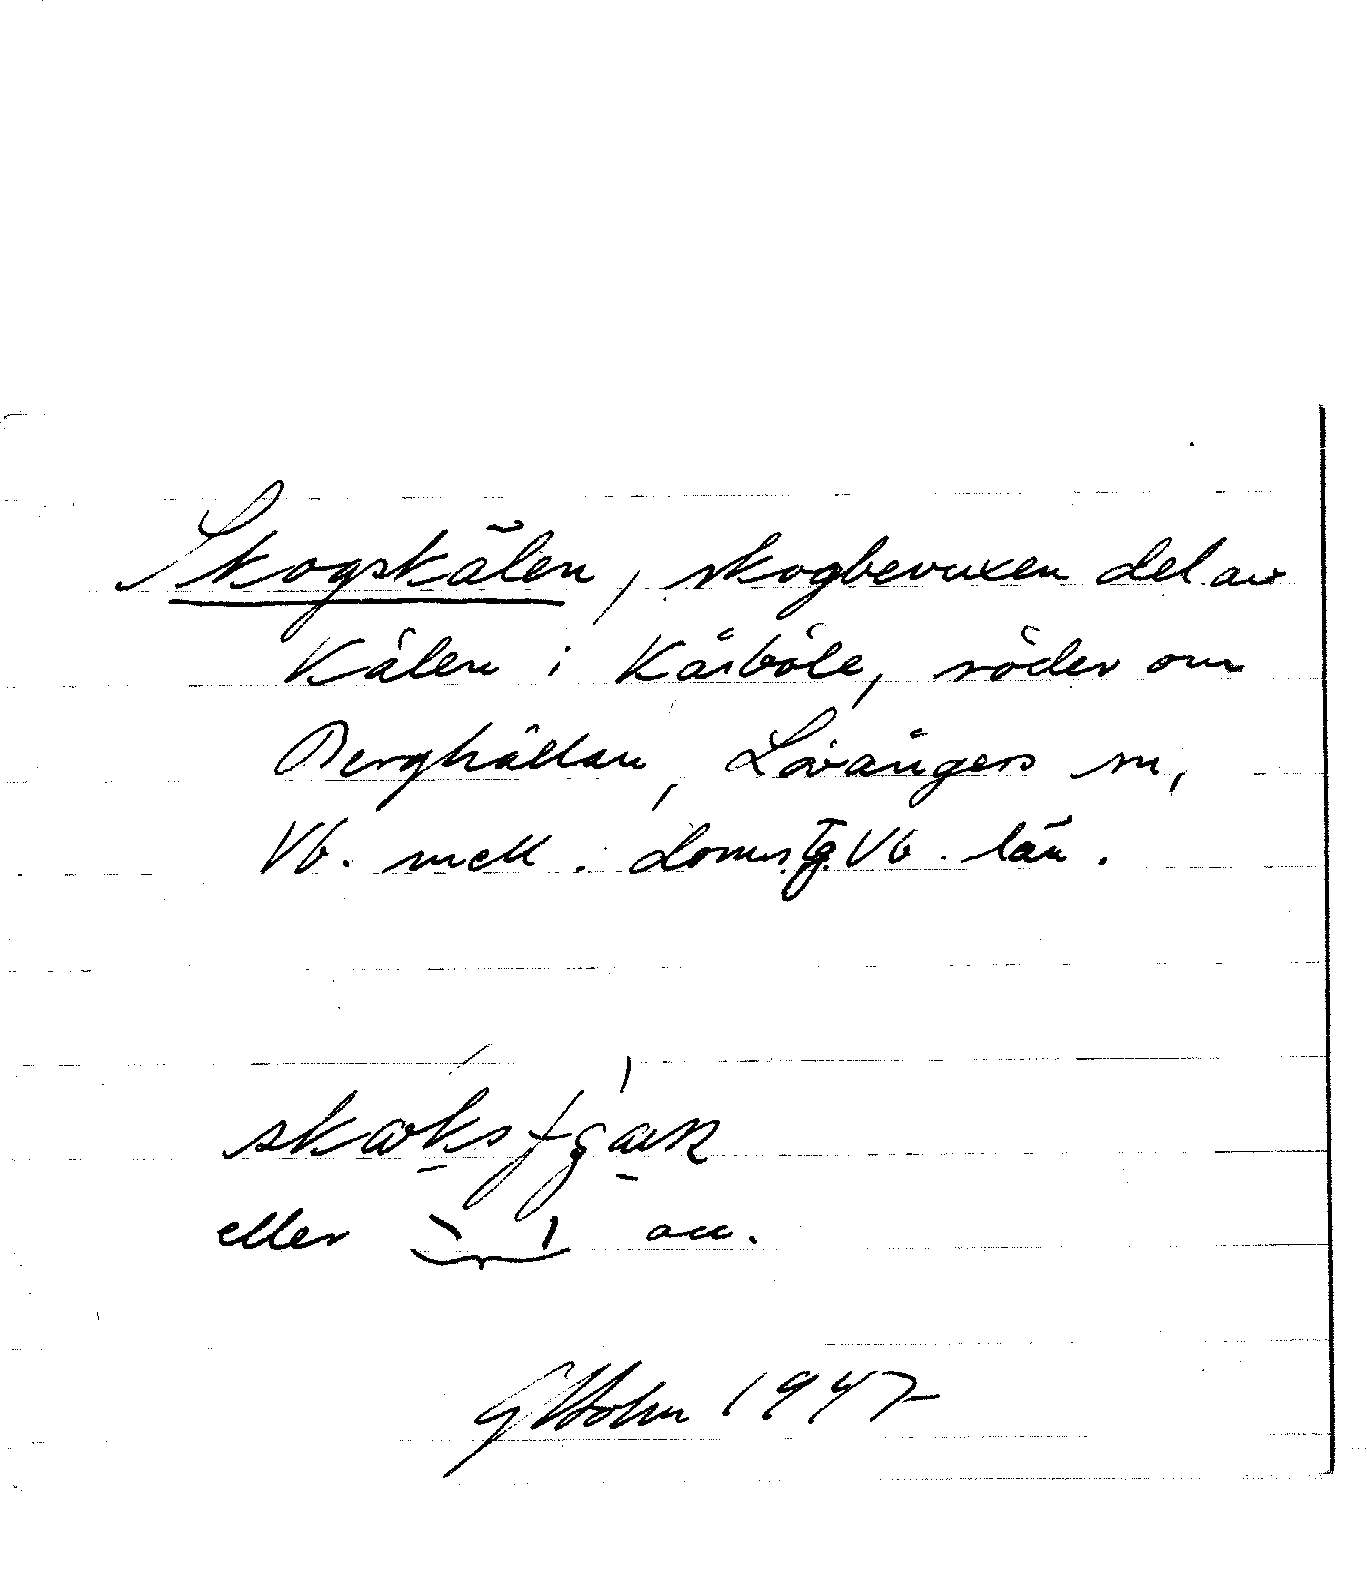 Skogskälen, skogbevuxen del av
Kälen i Kårböle, söder om
Berghällan, Lövångers sn,
Vb. mell. domstg. Vb. län.
eller acc.
G Holm 1947